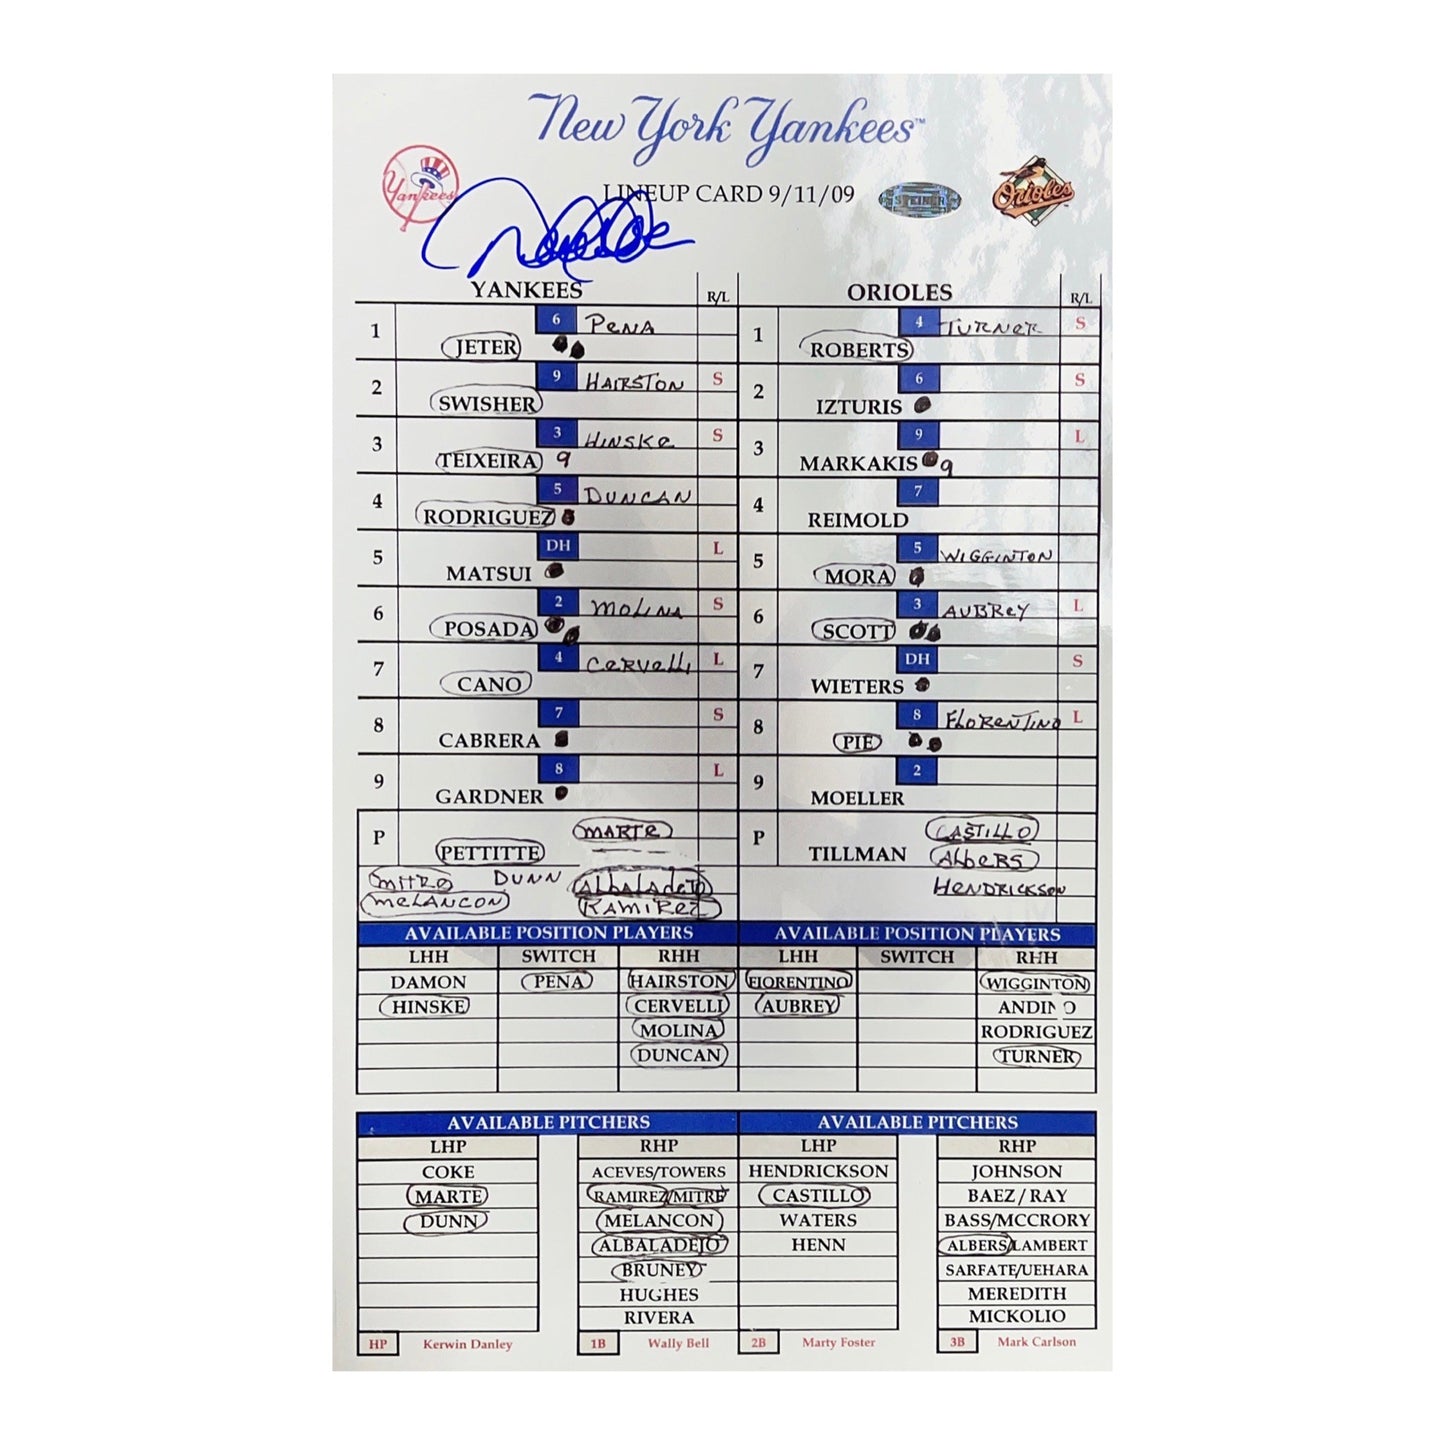 New York Yankees™
Yankees
LINEUP CARD 9/11/09
STEINER
Orioles
YANKEES R/L ORIOLES R/L
1 JETER 6 PENA
1 ROBERTS 4 TURNER S
2 SWISHER 9 HAIRSTON S
2 IZTURIS 6 S
3 TEIXEIRA 3 9 HINSKE S
3 MARKAKIS 9 9 L
4 RODRIGUEZ 5 DUNCAN
4 REIMOLD 7
5 MATSUI DH L
5 MORA 5 WIGGINTON
6 POSADA 2 MOLINA S
6 SCOTT 3 AUBREY L
7 CANO 4 CERVELLI L
7 WIETERS DH S
8 CABRERA 7 S
8 PIE 8 FLORENTINO L
9 GARDNER 8 L
9 MOELLER 2
P PETTITTE MARTE
MITRE DUNN ALBALADEJO
MELANCON RAMIREZ
P TILLMAN CASTILLO
ALBERS
HENDRICKSON
AVAILABLE POSITION PLAYERS AVAILABLE POSITION PLAYERS
LHH SWITCH RHH LHH SWITCH RHH
DAMON PENA HAIRSTON FIORENTINO WIGGINTON
HINSKE CERVELLI AUBREY ANDINO
MOLINA RODRIGUEZ
DUNCAN TURNER
AVAILABLE PITCHERS AVAILABLE PITCHERS
LHP RHP LHP RHP
COKE ACEVES/TOWERS HENDRICKSON JOHNSON
MARTE RAMIREZ/MITRE CASTILLO BAEZ / RAY
DUNN MELANCON WATERS BASS/MCCRORY
ALBALADEJO HENN ALBERS/LAMBERT
BRUNEY SARFATE/UEHARA
HUGHES MEREDITH
RIVERA MICKOLIO
HP Kerwin Danley 1B Wally Bell 2B Marty Foster 3B Mark Carlson